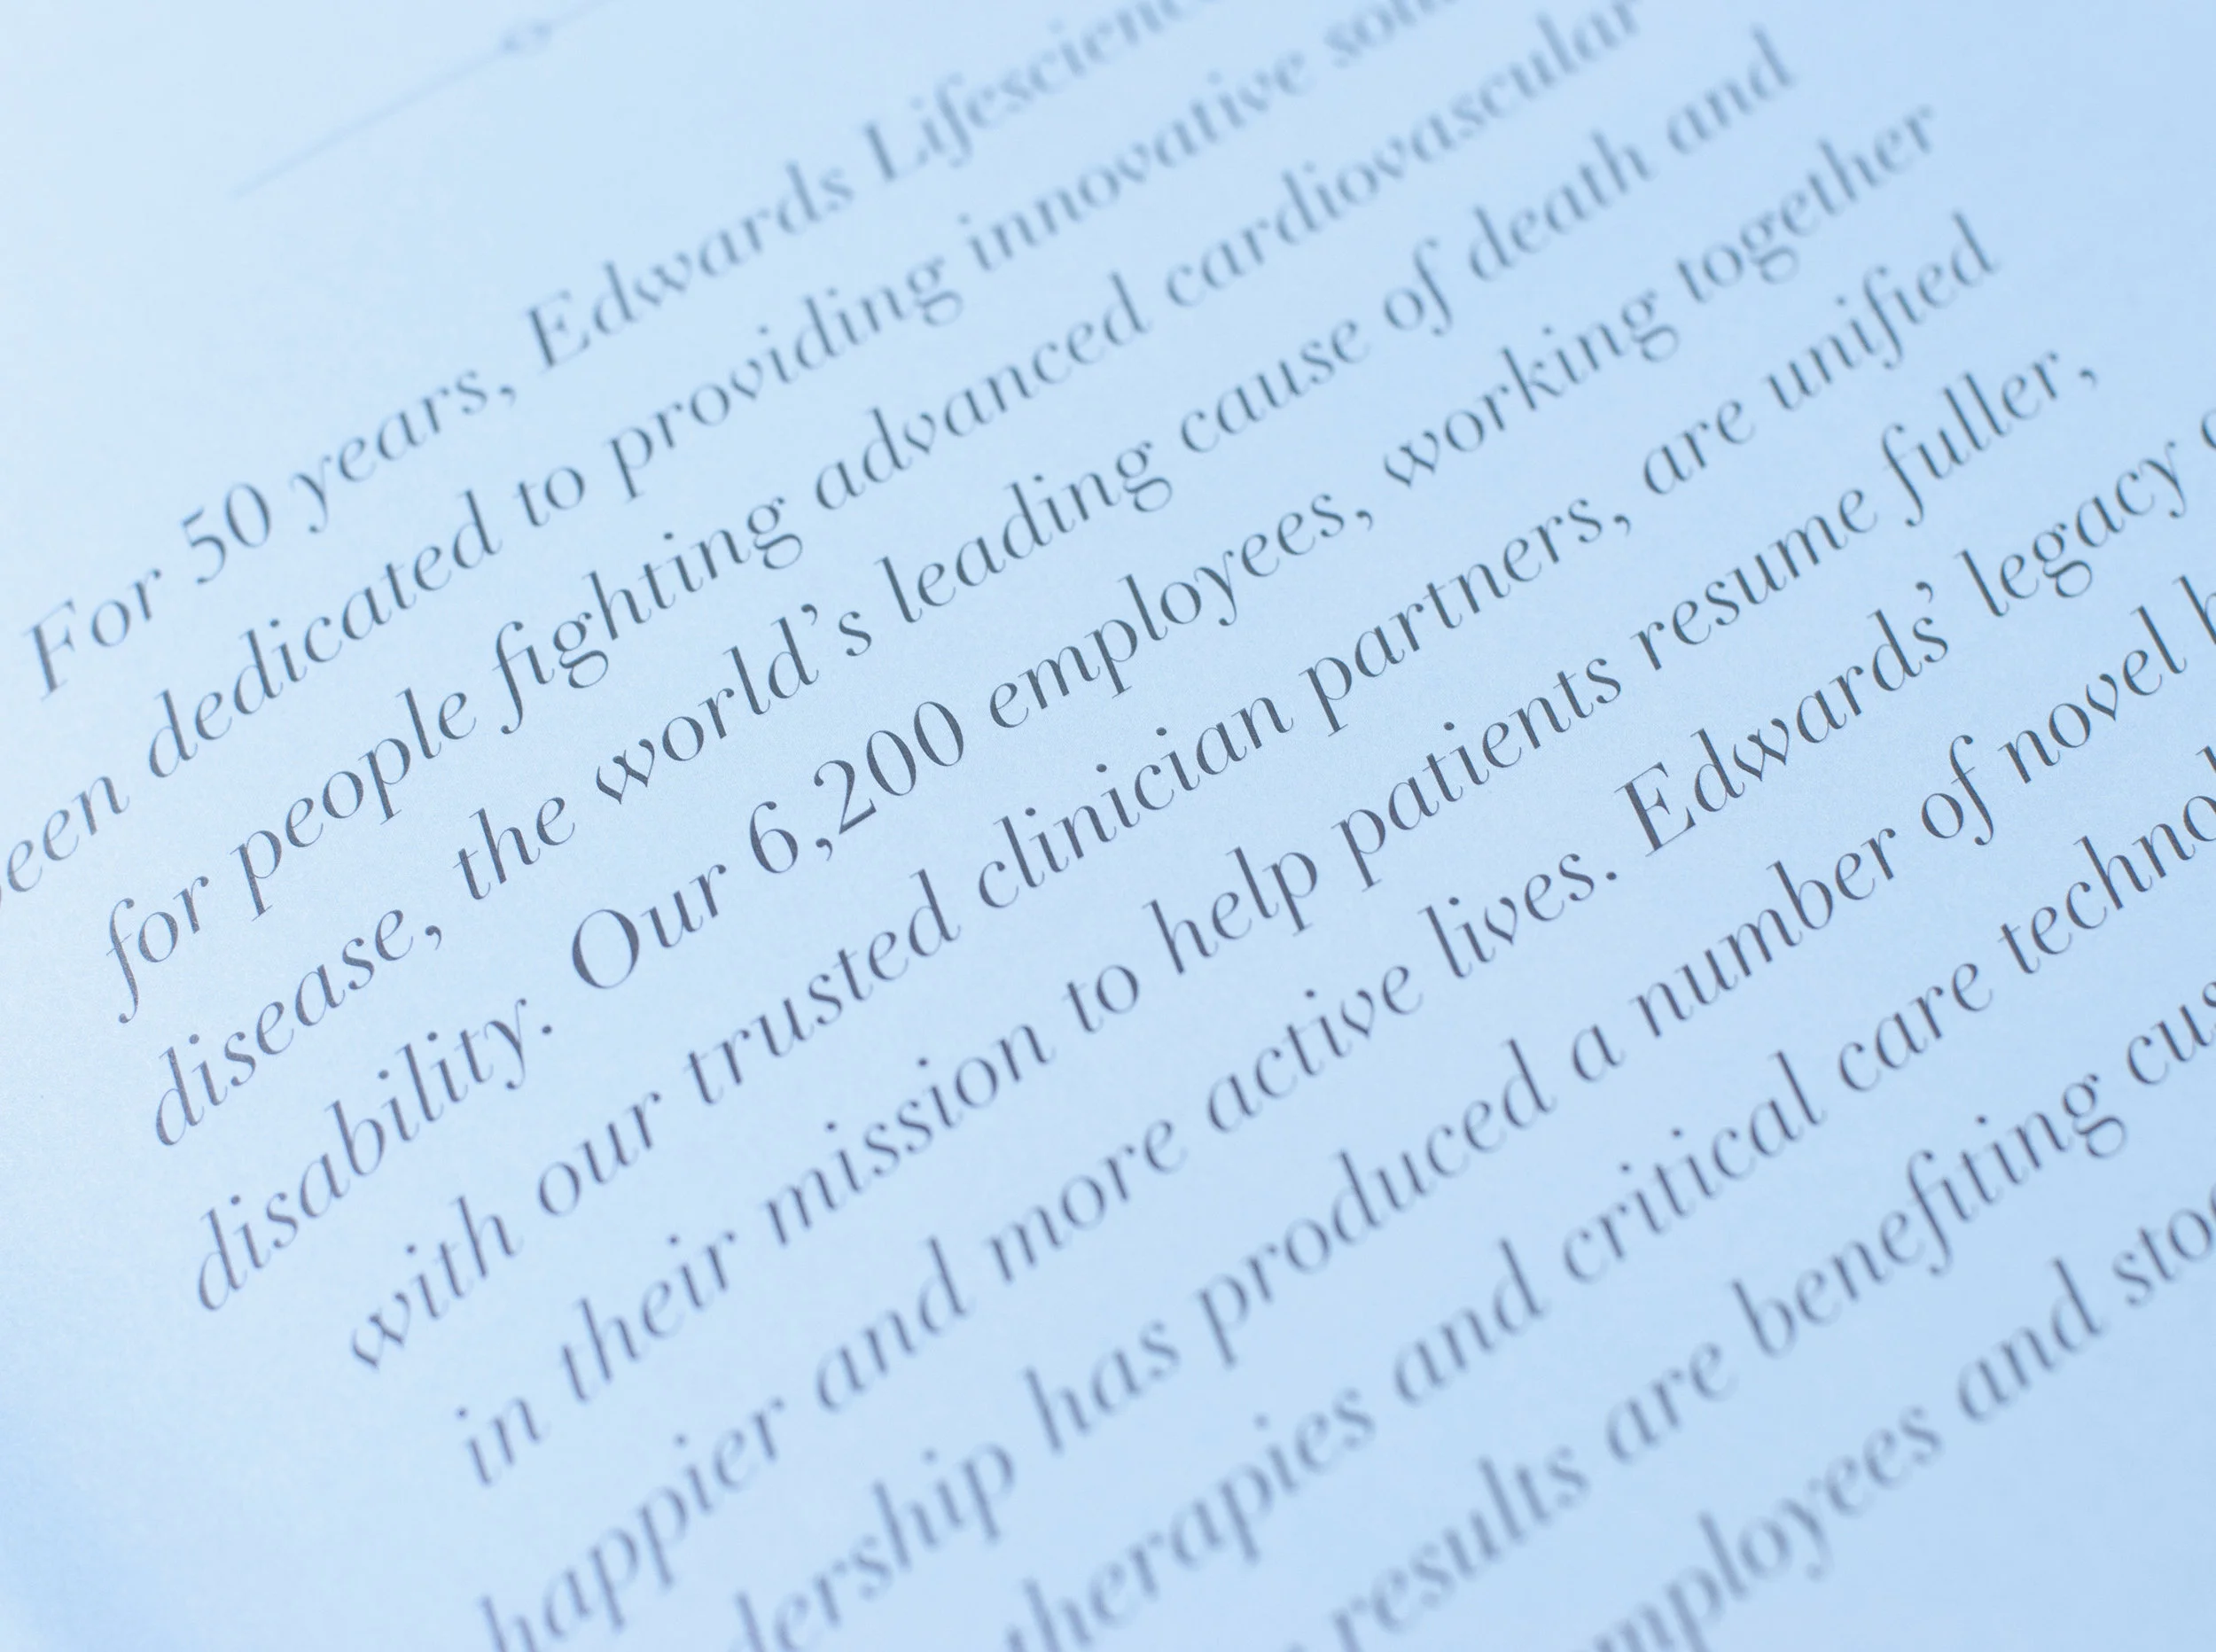 For 50 years, Edwards
dedicated to providing innovative
for people fighting advanced cardiovascular
disease, the world’s leading cause of death and
disability. Our 6,200 employees, working together
with our trusted clinician partners, are unified
in their mission to help patients resume fuller,
happier and more active lives. Edwards’ legacy
has produced a number of novel
therapies and critical care
results are benefiting
and